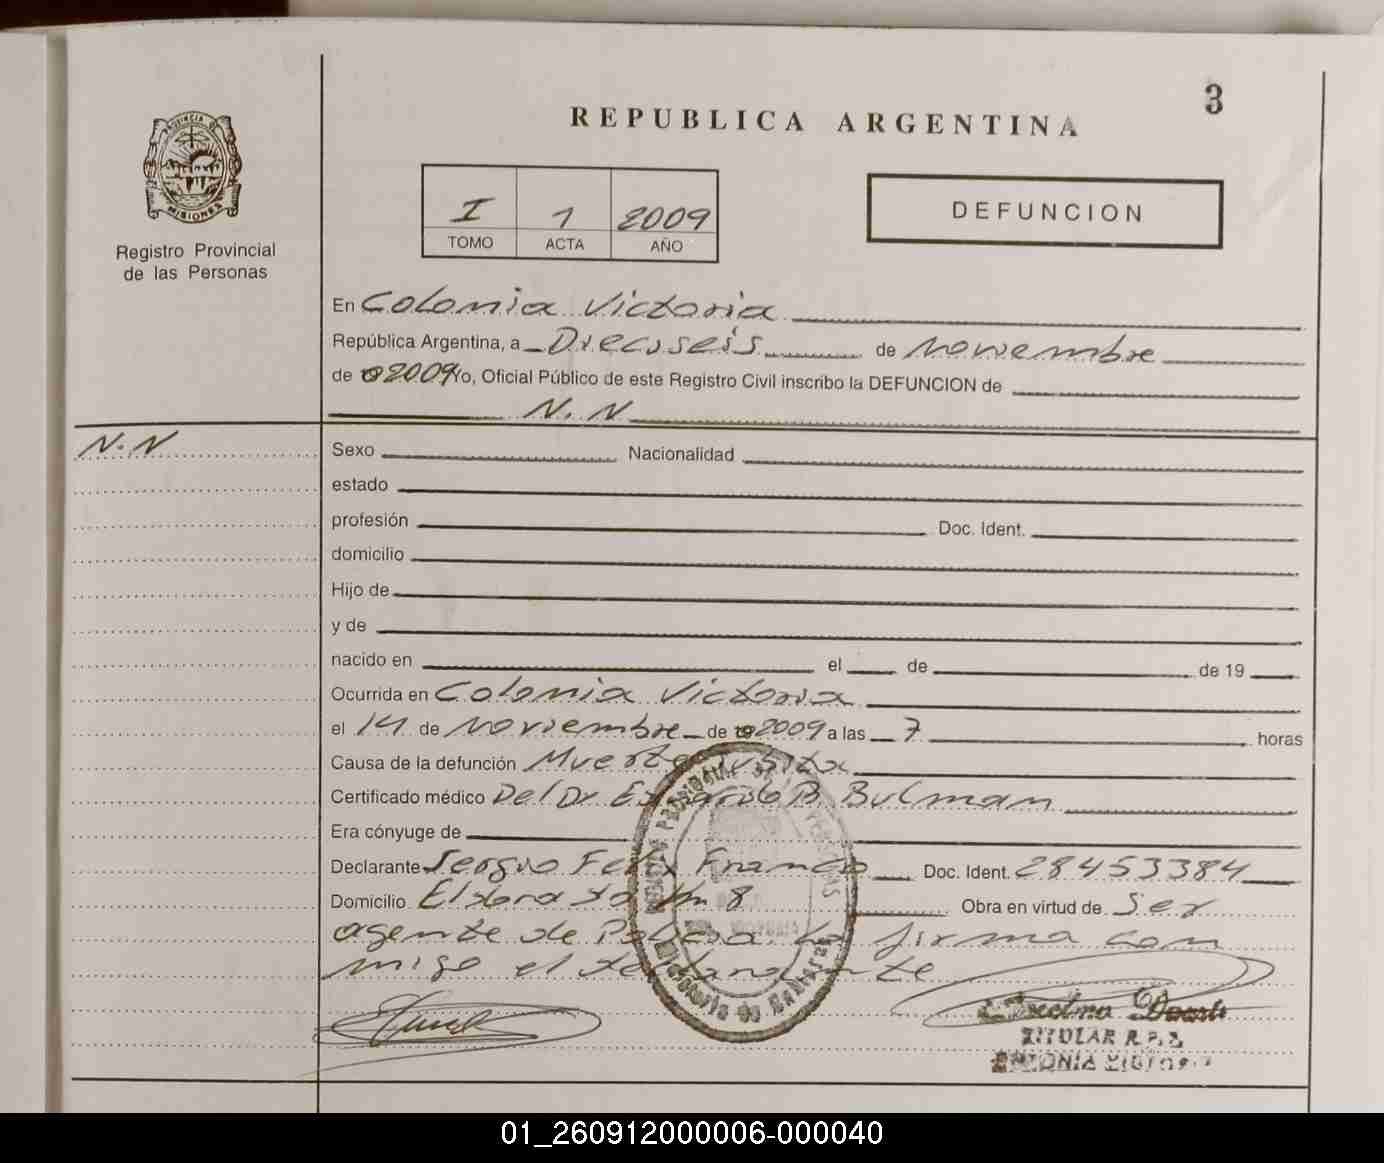 3
REPUBLICA ARGENTINA
PROVINCIA DE
MISIONES
Registro Provincial
de las Personas
I 1 2009
TOMO ACTA AÑO
DEFUNCION
En Colonia Victoria
República Argentina, a Dieciseis de noviembre
de 2009 Yo, Oficial Público de este Registro Civil inscribo la DEFUNCION de
N.N
N.N
Sexo Nacionalidad
estado
profesión Doc. Ident.
domicilio
Hijo de
y de
nacido en el de de 19
Ocurrida en Colonia Victoria
el 14 de noviembre de 2009 a las 7 horas
Causa de la defunción Muerte subita
Certificado médico Del Dr. Eduardo B. Bulman
Era cónyuge de
Declarante Sergio Felix Franco Doc. Ident. 28453384
Domicilio Eldorado km 8 Obra en virtud de Ser
agente de Policia. Lo firma con
migo el declarante
Duarte
TITULAR R.P.P.
COLONIA VICTORIA
01_260912000006-000040